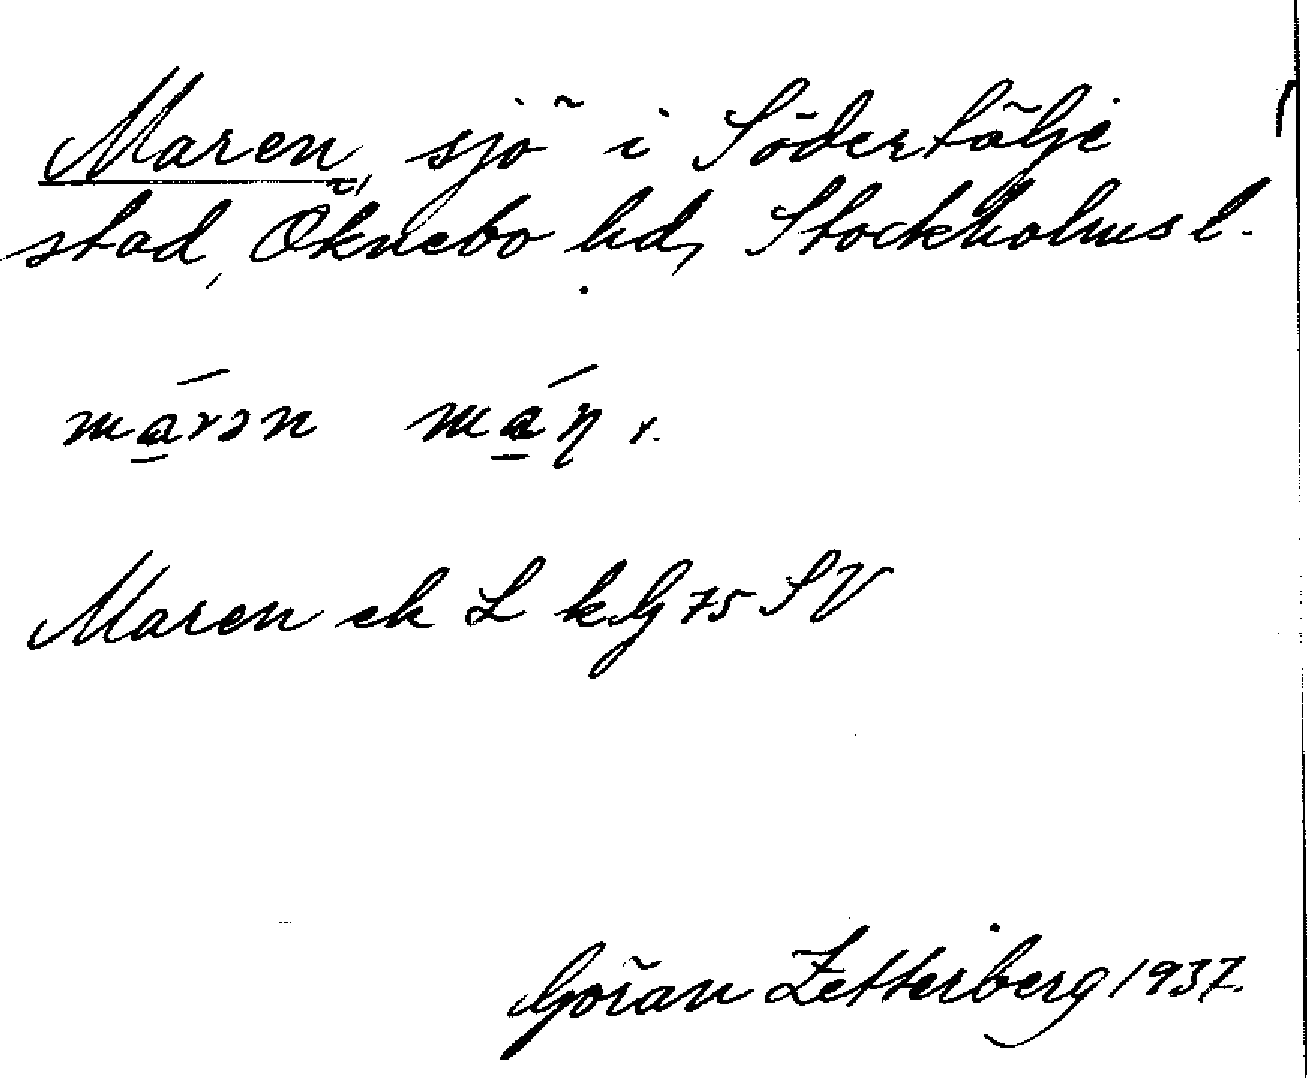 Maren, sjö i Södertälje
stad, Öknebo hd, Stockholms l.
má̲rən má̲ŋ r.
Maren ek L k.G 75 SV
Göran Zetterberg 1937.